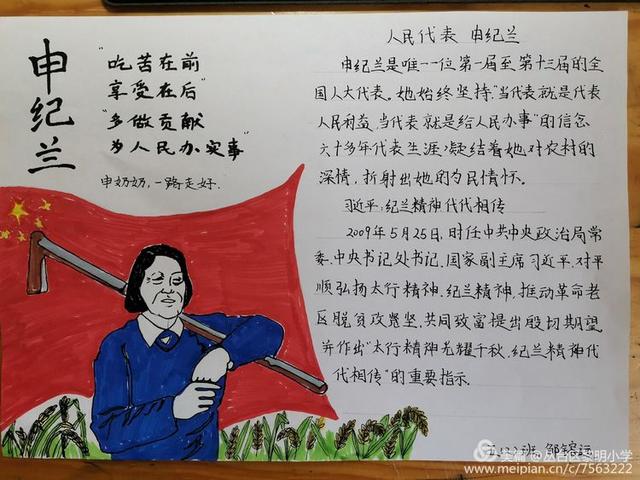 申纪兰
"吃苦在前
享受在后"
"多做贡献
为人民办实事"
申奶奶,一路走好.
人民代表 申纪兰
申纪兰是唯一一位第一届至第十三届的全
国人大代表。她始终坚持"当代表就是代表
人民利益,当代表就是给人民办事"的信念
六十多年代表生涯,凝结着她对农村的
深情,折射出她的为民情怀。
习近平:纪兰精神代代相传
2009年5月25日,时任中共中央政治局常
委、中央书记处书记、国家副主席习近平,对平
顺弘扬太行精神、纪兰精神,推动革命老
区脱贫攻坚,共同致富提出殷切期望,
并作出"太行精神光耀千秋,纪兰精神代
代相传"的重要指示.
班 邹镕远
小学
www.meipian.cn/c/7563222